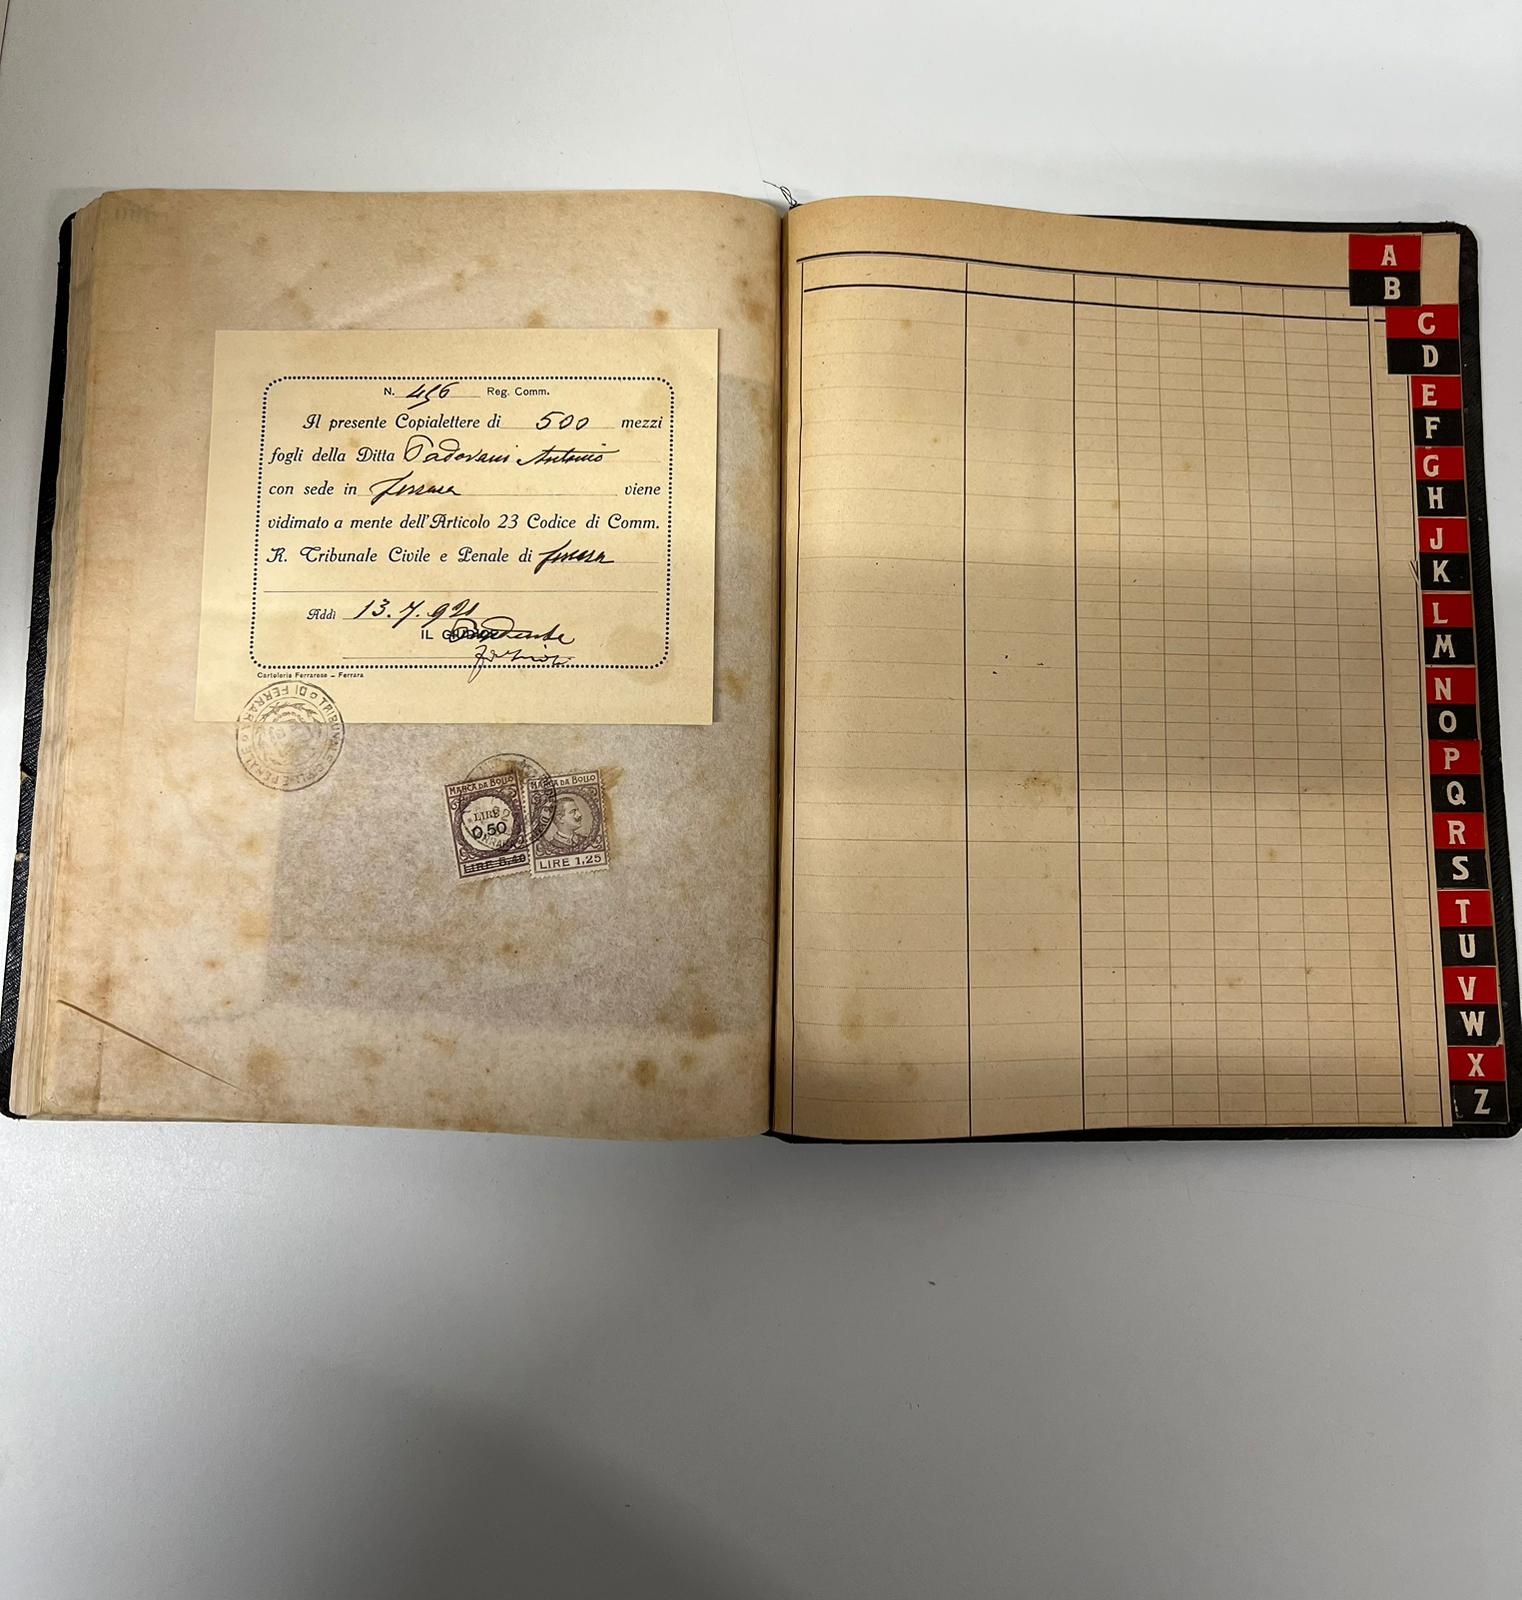 N. 456 Reg. Comm.
Il presente Copialettere di 500 mezzi
fogli della Ditta Padovani Antonio
con sede in Ferrara viene
vidimato a mente dell'Articolo 23 Codice di Comm.
R. Tribunale Civile e Penale di Ferrara
Addì 13.7.92
IL
Cartoleria Ferrarese - Ferrara
TRIBUNALE CIVILE E PENALE DI FERRARA
MARCA DA BOLLO
LIRE
0,50
LIRE 5,40
MARCA DA BOLLO
LIRE 1,25
A
B
C
D
E
F
G
H
J
K
L
M
N
O
P
Q
R
S
T
U
V
W
X
Z